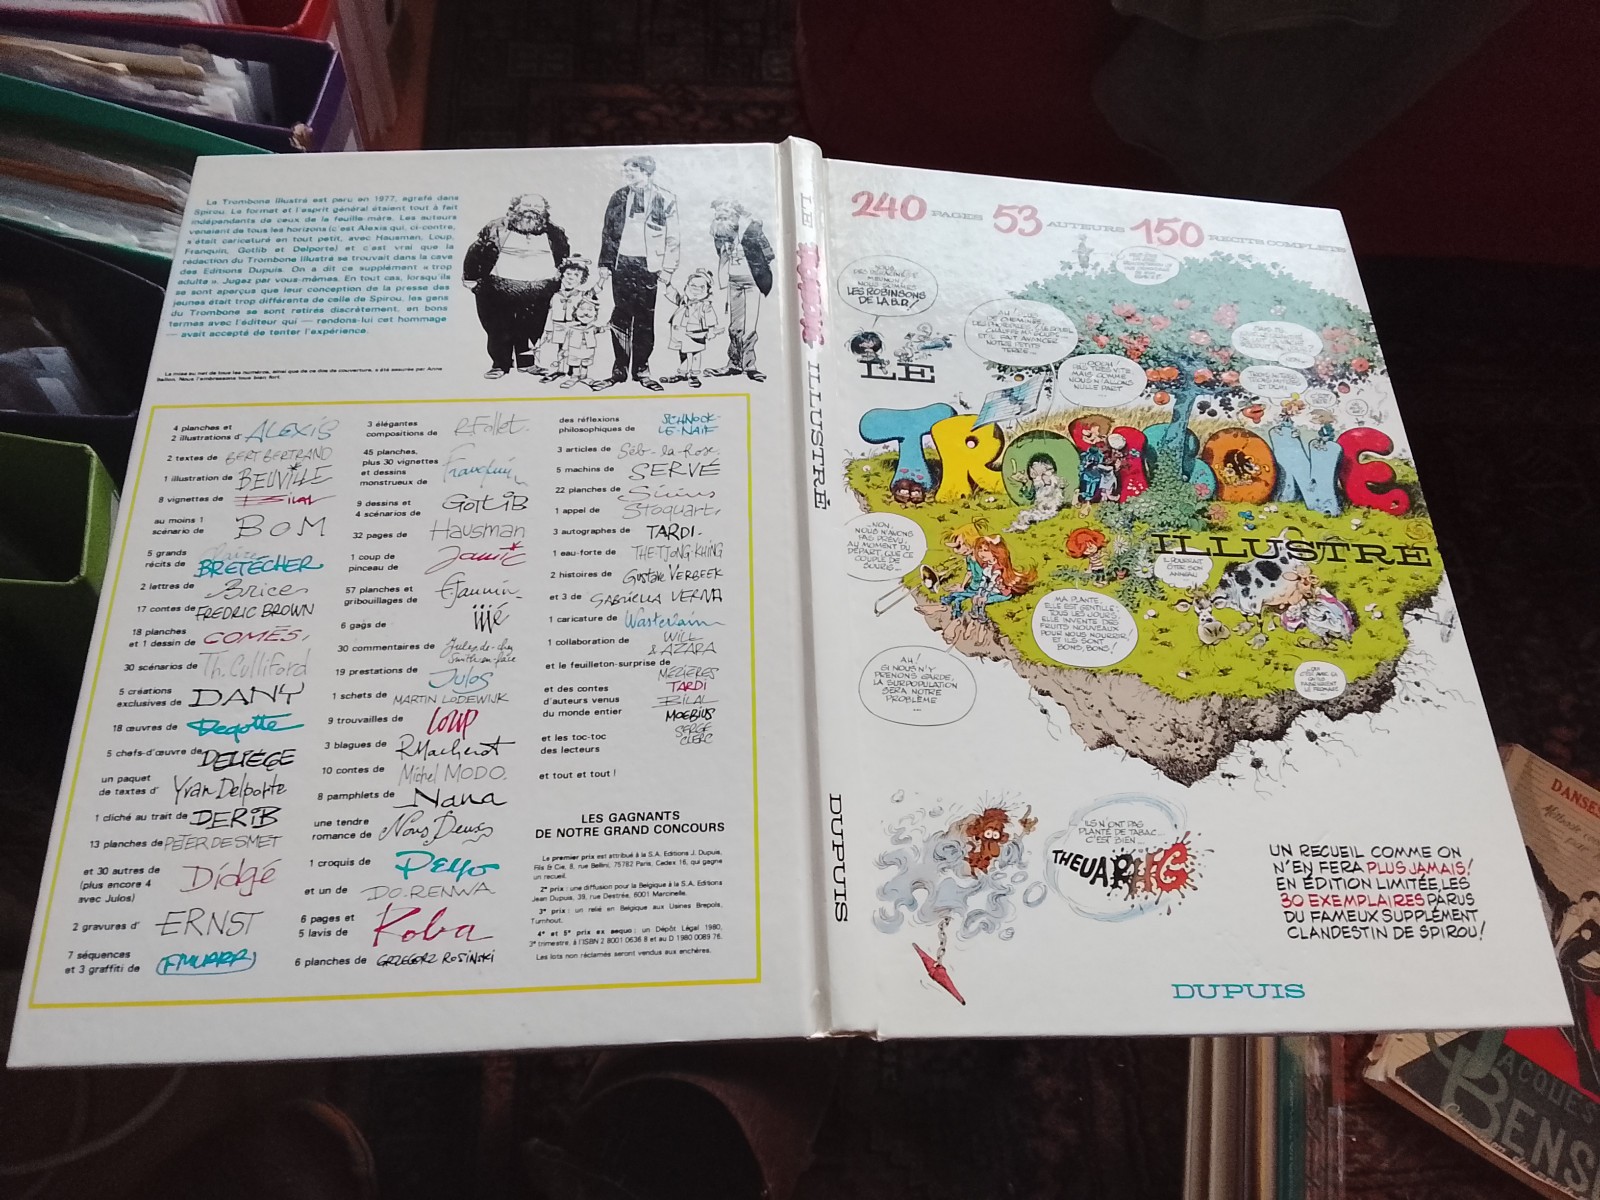 La Trombone Illustré est paru en 1977, agrafé dans
Spirou. Le format et l'esprit général étaient tout à fait
indépendants de ceux de la feuille mère. Les auteurs
venaient de tous les horizons (c'est Alexis qui, ci-contre,
s'était caricaturé en tout petit, avec Hausman, Loup,
Franquin, Gotlib et Delporte) et c'est vrai que la
rédaction du Trombone Illustré se trouvait dans la cave
des Editions Dupuis. On a dit ce supplément « trop
adulte ». Jugez par vous-mêmes. En tout cas, lorsqu'ils
se sont aperçus que leur conception de la presse des
jeunes était trop différente de celle de Spirou, les gens
du Trombone se sont retirés discrètement, en bons
termes avec l'éditeur qui — rendons-lui cet hommage
— avait accepté de tenter l'expérience.
4 planches et
2 illustrations d' ALEXIS
2 textes de BERT BERTRAND
1 illustration de BEUVILLE
8 vignettes de BILAL
au moins 1
scénario de BOM
5 grands
récits de Claire BRETECHER
2 lettres de Brice
17 contes de FREDRIC BROWN
18 planches
et 1 dessin de COMÈS,
30 scénarios de Th. Culliford
5 créations
exclusives de DANY
18 œuvres de Degotte
5 chefs-d'œuvre de DELIÈGE
un paquet
de textes d' Yvan Delporte
1 cliché au trait de DERIB
13 planches de PETER DE SMET
et 30 autres de
(plus encore 4
avec Julos) Didgé
2 gravures d' ERNST
7 séquences
et 3 graffiti de FMURRR
3 élégantes
compositions de R. Follet.
45 planches,
plus 30 vignettes
et dessins
monstrueux de Franquin
9 dessins et
4 scénarios de GOTLIB
32 pages de Hausman
1 coup de
pinceau de Jannin
57 planches et
gribouillages de F. Jannin
6 gags de jijé
30 commentaires de Jules-de-chez
Smith-en-face
19 prestations de Julos
1 schets de MARTIN LODEWIJK
9 trouvailles de Loup
3 blagues de R. Macherot
10 contes de Michel MODO.
8 pamphlets de Nana
une tendre
romance de Nous Deux
1 croquis de PEYO
et un de DO. RENWA
6 pages et
5 lavis de Koba
6 planches de GRZEGORZ ROSINSKI
des réflexions
philosophiques de SCHNOCK-
LE-NAIF
3 articles de Séb-la-Rose.
5 machins de SERVÉ
22 planches de Sirius
1 appel de Stoquart,
3 autographes de TARDI.
1 eau-forte de THE TJONG KHING
2 histoires de Gustave VERBEEK
et 3 de GABRIELLA VERNA
1 caricature de Wasterlain
1 collaboration de WILL
& AZARA
et le feuilleton-surprise de
MÉZIÈRES
et des contes
d'auteurs venus
du monde entier
TARDI
BILAL
MOEBIUS
SERGE
CLERC
et les toc-toc
des lecteurs
et tout et tout !
LES GAGNANTS
DE NOTRE GRAND CONCOURS
Le premier prix est attribué à la S.A. Editions J. Dupuis,
Fils & Cie, 8, rue Bellini, 75782 Paris, Cedex 16, qui gagne
un recueil.
2e prix : une diffusion pour la Belgique à la S.A. Editions
Jean Dupuis, 39, rue Destrée, 6001 Marcinelle.
3e prix : un relié en Belgique aux Usines Brepols,
Turnhout.
4e et 5e prix ex aequo : un Dépôt Légal 1980,
3e trimestre, à l'ISBN 2 8001 0636 8 et au D 1980 0089 76.
Les lots non réclamés seront vendus aux enchères.
LE TROMBONE ILLUSTRÉ
DUPUIS
240 PAGES 53 AUTEURS 150 RÉCITS COMPLETS
NOUS SOMMES
LES ROBINSONS
DE LA B.D!
LE
TROMBONE
ILLUSTRÉ
OOOH!
PAS TRÈS VITE
MAIS COMME
NOUS N'ALLONS
NULLE PART
...
NON,
NOUS N'AVONS
PAS PRÉVU,
AU MOMENT DU
DÉPART, QUE CE
COUPLE DE
SOURIS...
IL POURRAIT
ÔTER SON
ANNEAU
MA PLANTE,
ELLE EST GENTILLE:
TOUS LES JOURS,
ELLE INVENTE DES
FRUITS NOUVEAUX
POUR NOUS NOURRIR!
ET ILS SONT
BONS, BONS!
AH!
SI NOUS N'Y
PRENONS GARDE,
LA SURPOPULATION
SERA NOTRE
PROBLÈME
...
ILS N'ONT PAS
PLANTÉ DE TABAC...
C'EST BIEN...
THEUARHG
UN RECUEIL COMME ON
N'EN FERA PLUS JAMAIS!
EN ÉDITION LIMITÉE, LES
30 EXEMPLAIRES PARUS
DU FAMEUX SUPPLÉMENT
CLANDESTIN DE SPIROU!
DUPUIS
DANSE
JACQUES
BENS